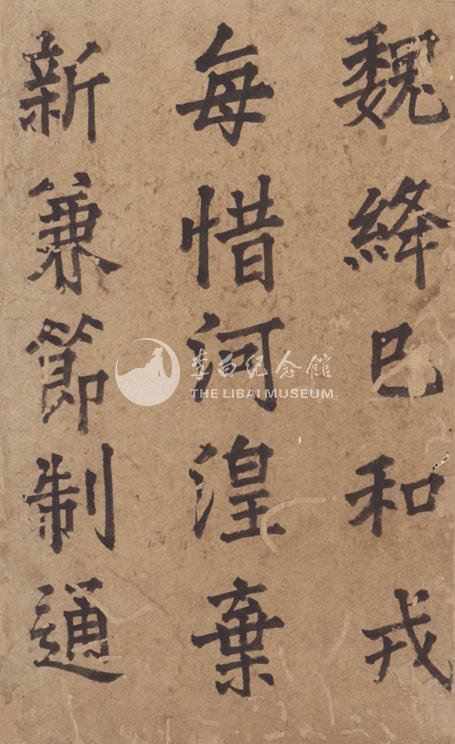 魏絳已和戎
每惜河湟棄
新兼節制通
李白纪念館
THE LIBAI MUSEUM